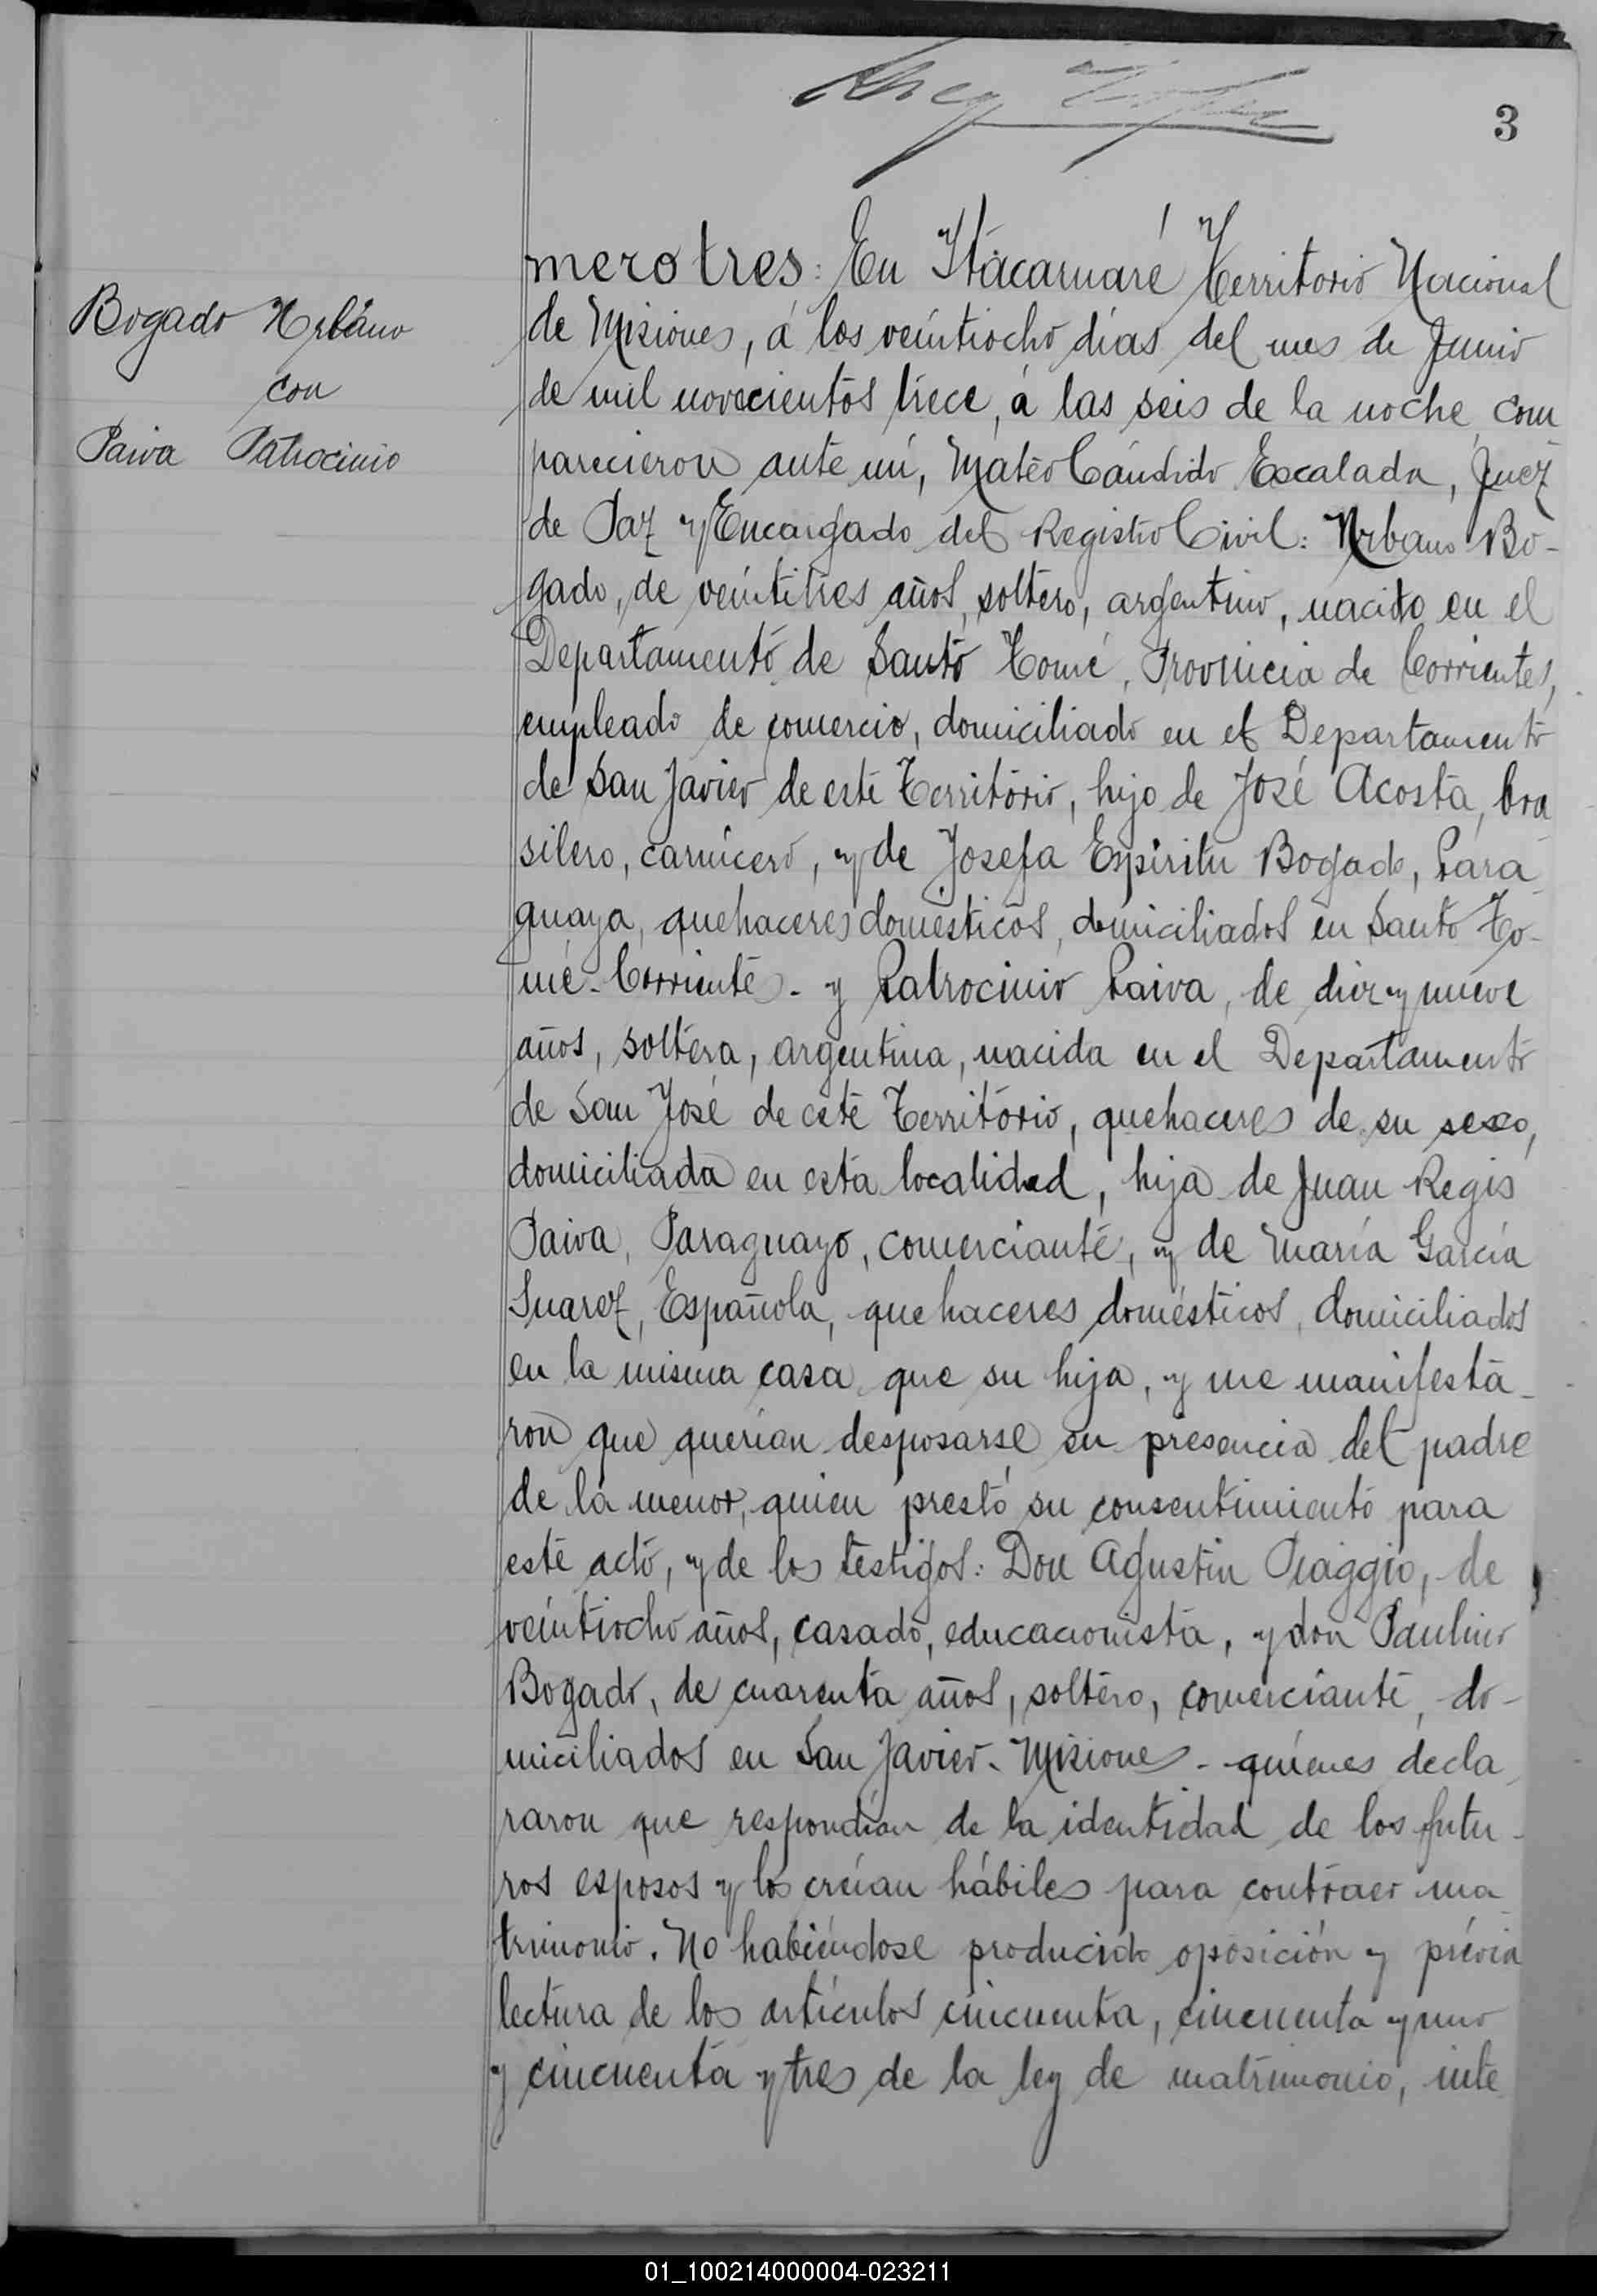 3
Bogado Urbano
con
Paiva Patrocinio
mero tres: En Itacaruaré Territorio Nacional
de Misiones, á los veintiocho días del mes de Junio
de mil novecientos trece, á las seis de la noche, com
parecieron ante mí, Matéo Cándido Escalada, Juez
de Paz y Encargado del Registro Civil: Urbano Bo-
gado, de veintitres años, soltero, argentino, nacido en el
Departamento de Santo Tomé, Provincia de Corrientes,
empleado de comercio, domiciliado en el Departamento
de San Javier de este Territorio, hijo de José Acosta, bra
silero, carnicero, y de Josefa Espíritu Bogado, Para
guaya, quehaceres domésticos, domiciliados en Santo To-
mé - Corrientes - y Patrocinio Paiva, de diez y nueve
años, soltera, argentina, nacida en el Departamento
de San José de este Territorio, quehaceres de su sexo,
domiciliada en esta localidad, hija de Juan Regis
Paiva, Paraguayo, comerciante, y de María García
Suarez, Española, quehaceres domésticos, domiciliados
en la misma casa que su hija, y me manifesta-
ron que querían desposarse en presencia del padre
de la menor, quien prestó su consentimiento para
este acto, y de los testigos: Don Agustin Piaggio, de
veintiocho años, casado, educacionista, y don Paulino
Bogado, de cuarenta años, soltero, comerciante, do-
miciliados en San Javier - Misiones - quienes decla
raron que respondían de la identidad de los futu-
ros esposos y los creían hábiles para contraer ma
trimonio. No habiéndose producido oposición y prévia
lectura de los artículos cincuenta, cincuenta y uno
y cincuenta y tres de la ley de matrimonio, inte
01_100214000004-023211